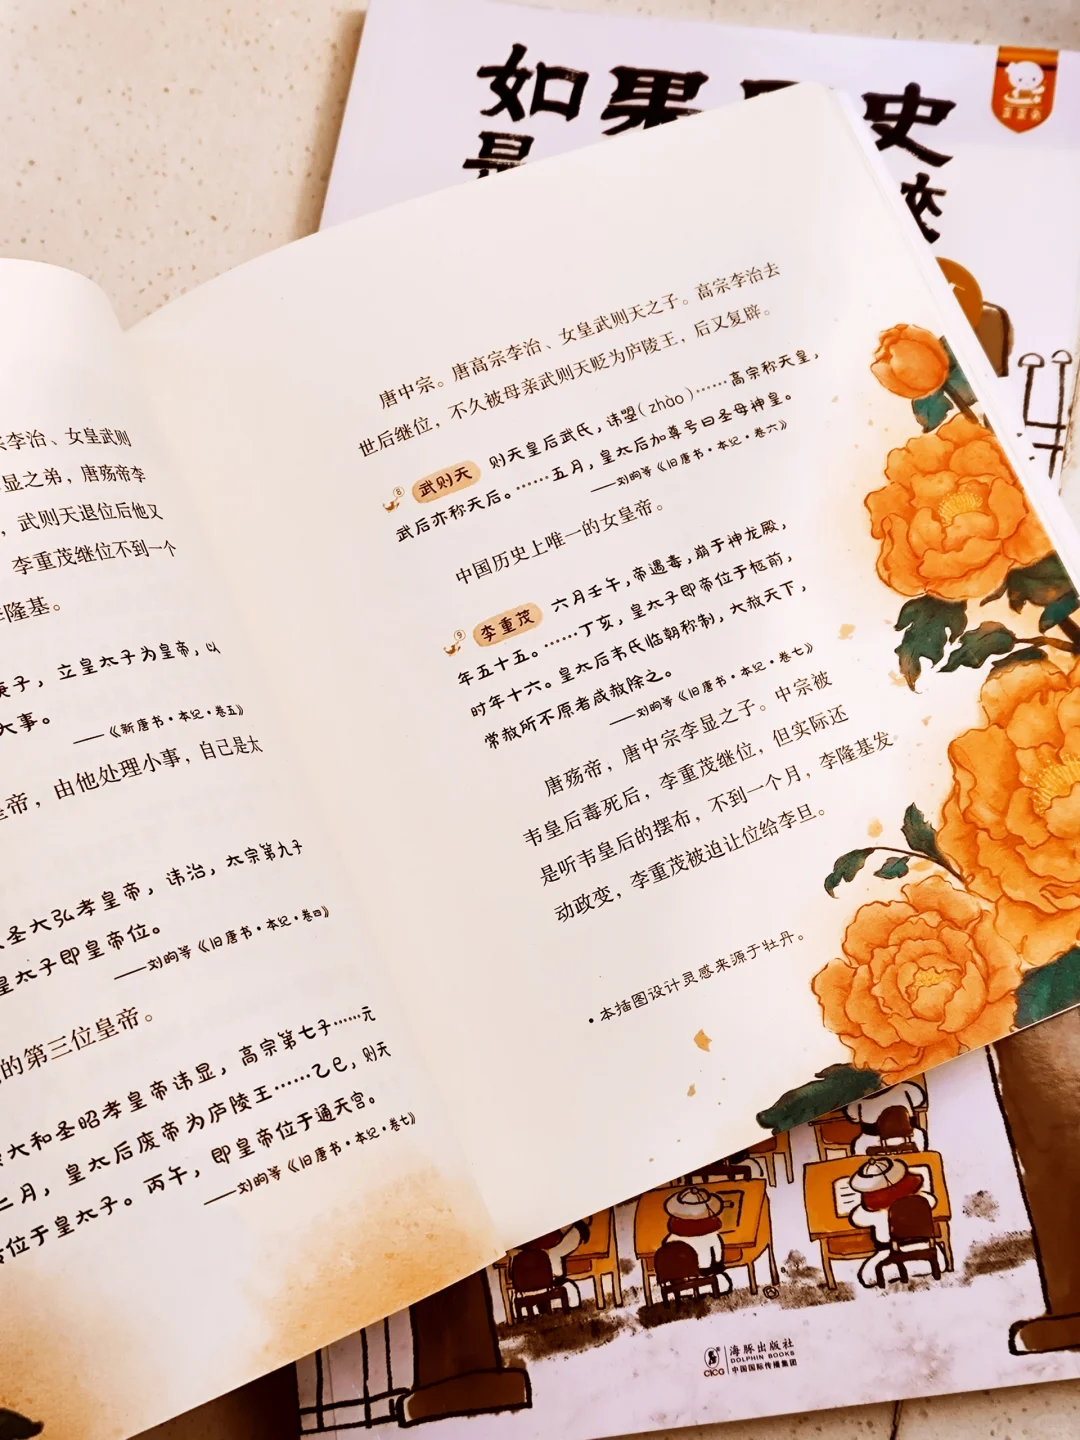 如果历史
是
宗李治、女皇武则
显之弟，唐殇帝李
，武则天退位后他又
李重茂继位不到一个
李隆基。
庚子，立皇太子为皇帝，以
大事。
——《新唐书·本纪·卷五》
皇帝，由他处理小事，自己是太
大圣大弘孝皇帝，讳治，太宗第九子
皇太子即皇帝位。
——刘昫等《旧唐书·本纪·卷四》
的第三位皇帝。
大和圣昭孝皇帝讳显，高宗第七子……元
二月，皇太后废帝为庐陵王……乙巳，则天
位于皇太子。丙午，即皇帝位于通天宫。
——刘昫等《旧唐书·本纪·卷七》
唐中宗。唐高宗李治、女皇武则天之子。高宗李治去
世后继位，不久被母亲武则天贬为庐陵王，后又复辟。
8 武则天 则天皇后武氏，讳曌(zhào)……高宗称天皇，
武后亦称天后。……五月，皇太后加尊号曰圣母神皇。
——刘昫等《旧唐书·本纪·卷六》
中国历史上唯一的女皇帝。
9 李重茂 六月壬午，帝遇毒，崩于神龙殿，
年五十五。……丁亥，皇太子即帝位于柩前，
时年十六。皇太后韦氏临朝称制，大赦天下，
常赦所不原者咸赦除之。
——刘昫等《旧唐书·本纪·卷七》
唐殇帝，唐中宗李显之子。中宗被
韦皇后毒死后，李重茂继位，但实际还
是听韦皇后的摆布，不到一个月，李隆基发
动政变，李重茂被迫让位给李旦。
•本插图设计灵感来源于牡丹。
CICG
海豚出版社
DOLPHIN BOOKS
中国国际传播集团